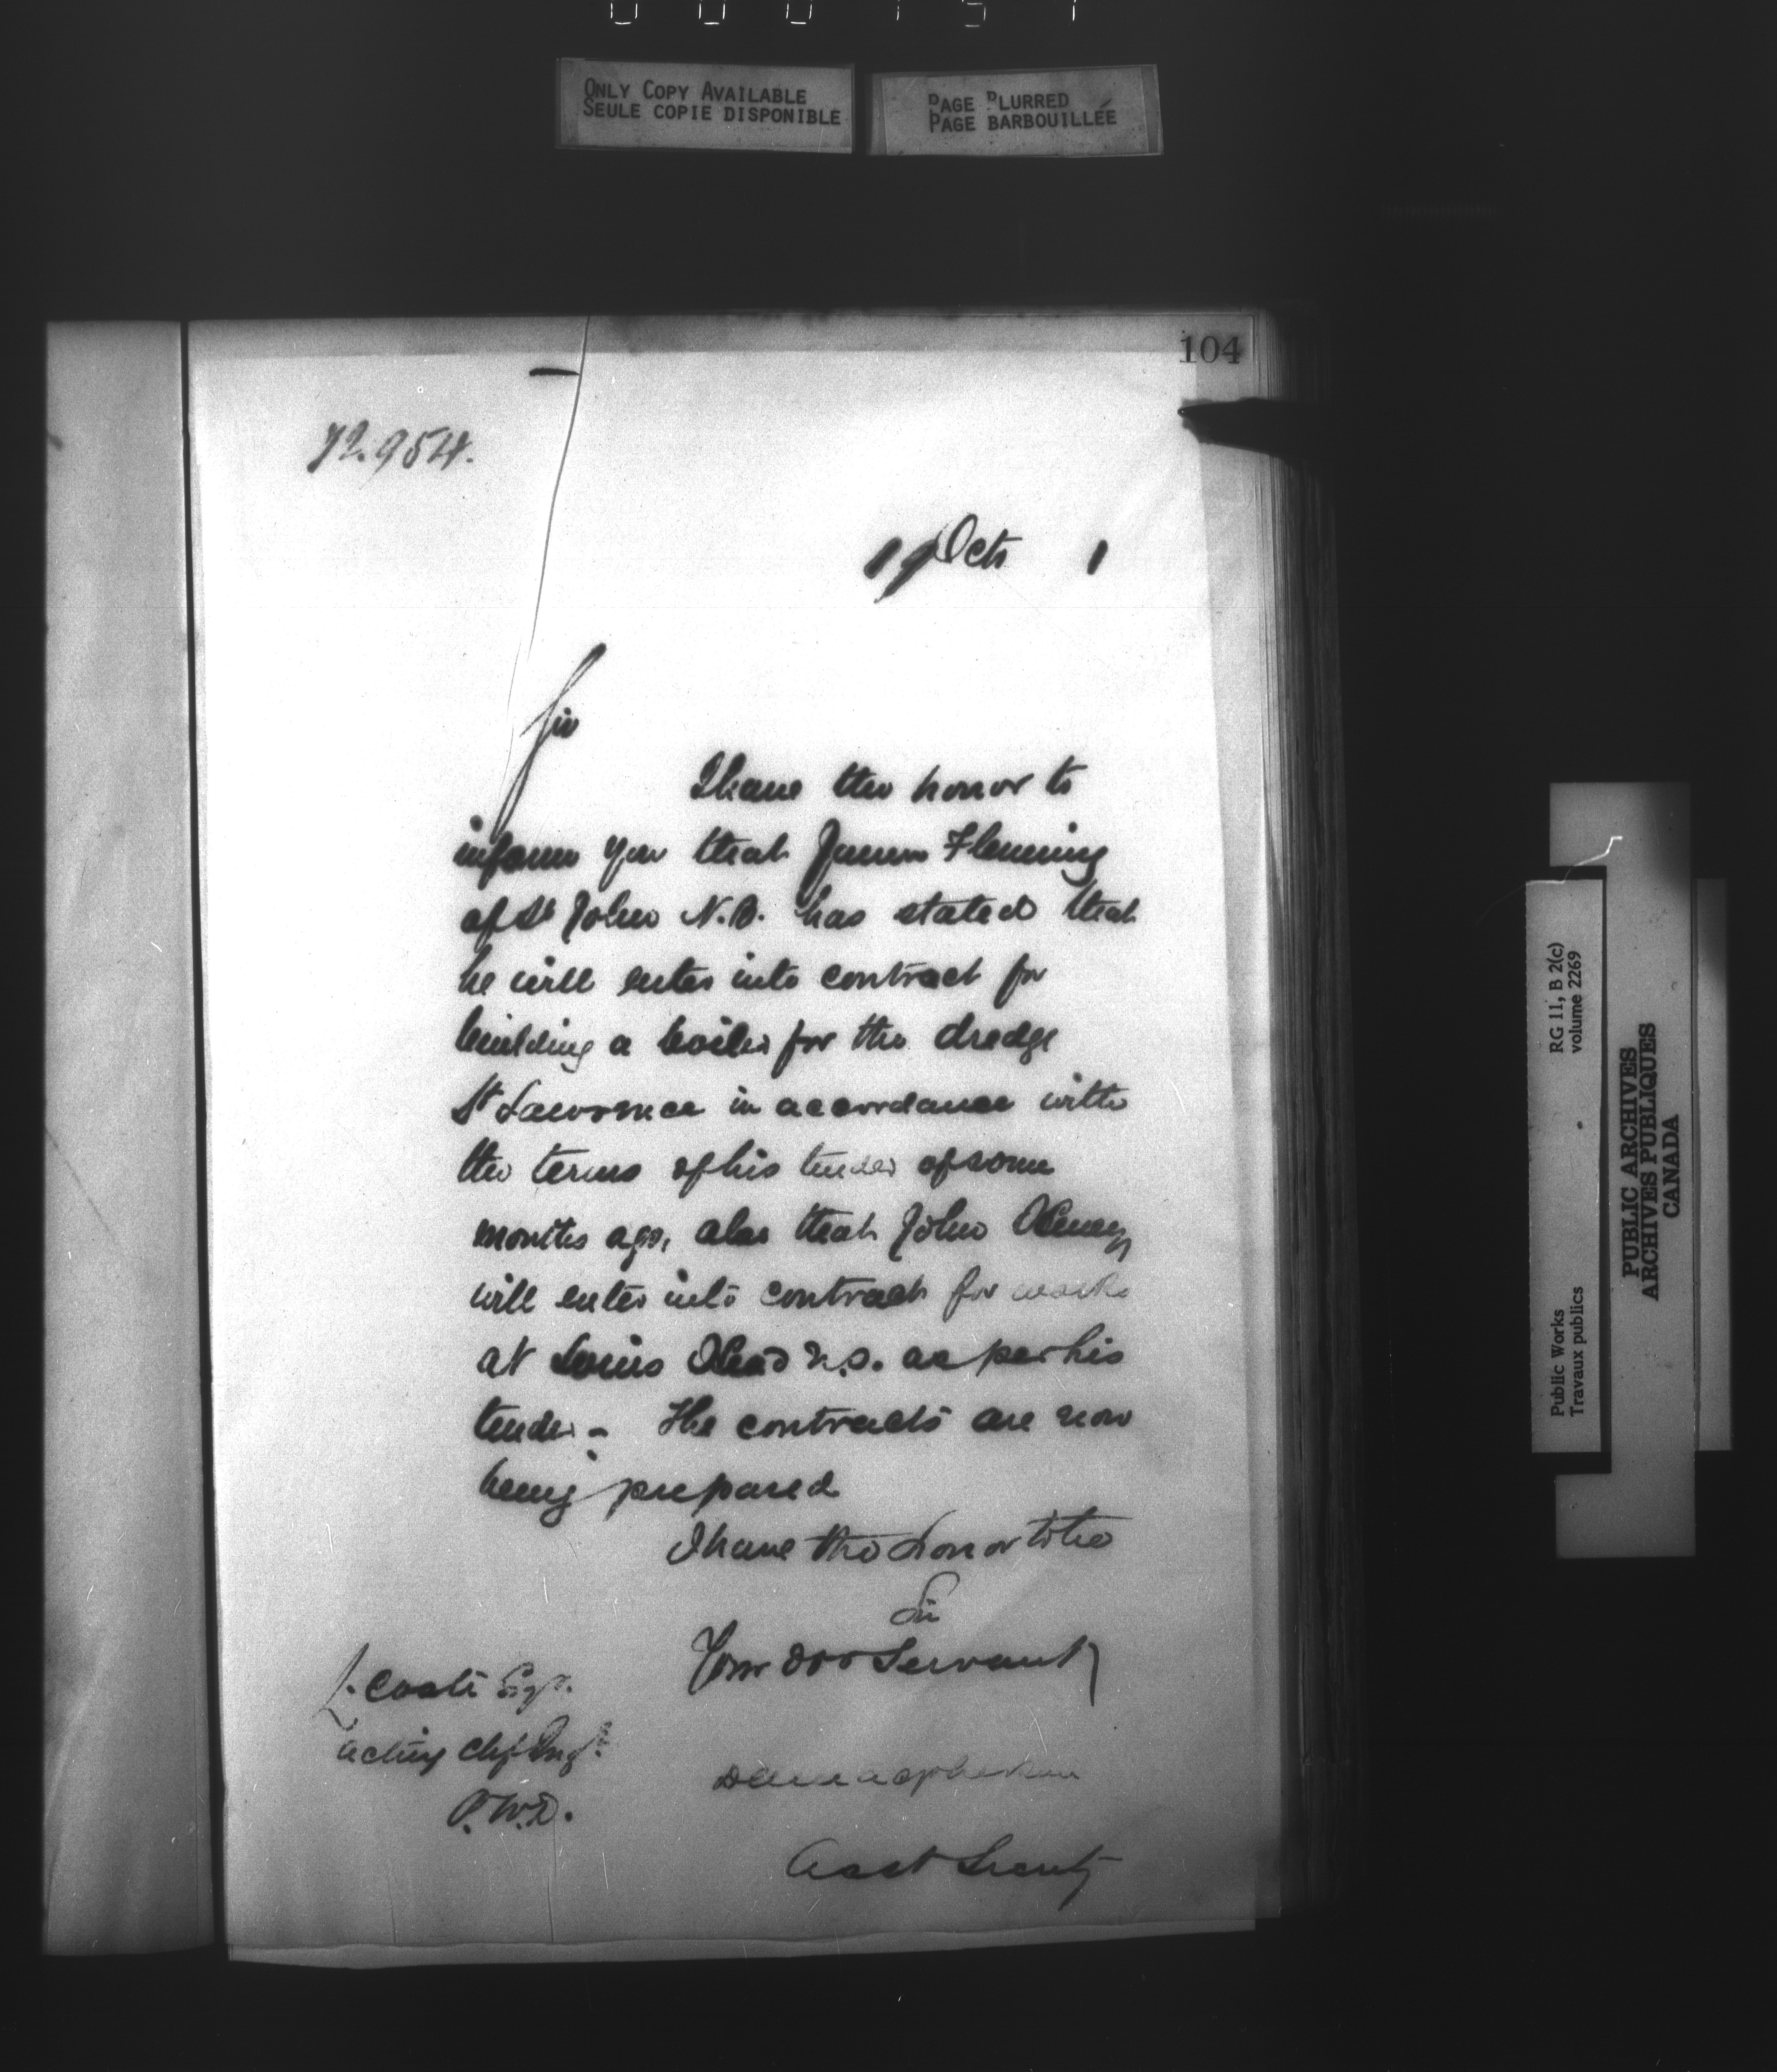 ONLY COPY AVAILABLE
SEULE COPIE DISPONIBLE
PAGE BLURRED
PAGE BARBOUILLÉE
104
72.954.
19 Octr 1
Sir
I have the honor to
inform you that James Fleming
of St John N.B. has stated that
he will enter into contract for
building a boiler for the dredge
St Lawrence in accordance with
the terms of his tender of some
months ago, also that John
will enter into contract for works
at Head N.S. as per his
tender - The contracts are now
being prepared
I have the honor to be
Sir
Your Servant
L. Coste Esq.
acting Chf Engr
P.W.D.
Asst Secrety
RG 11, B 2(c)
volume 2269
Public Works
Travaux publics
PUBLIC ARCHIVES
ARCHIVES PUBLIQUES
CANADA